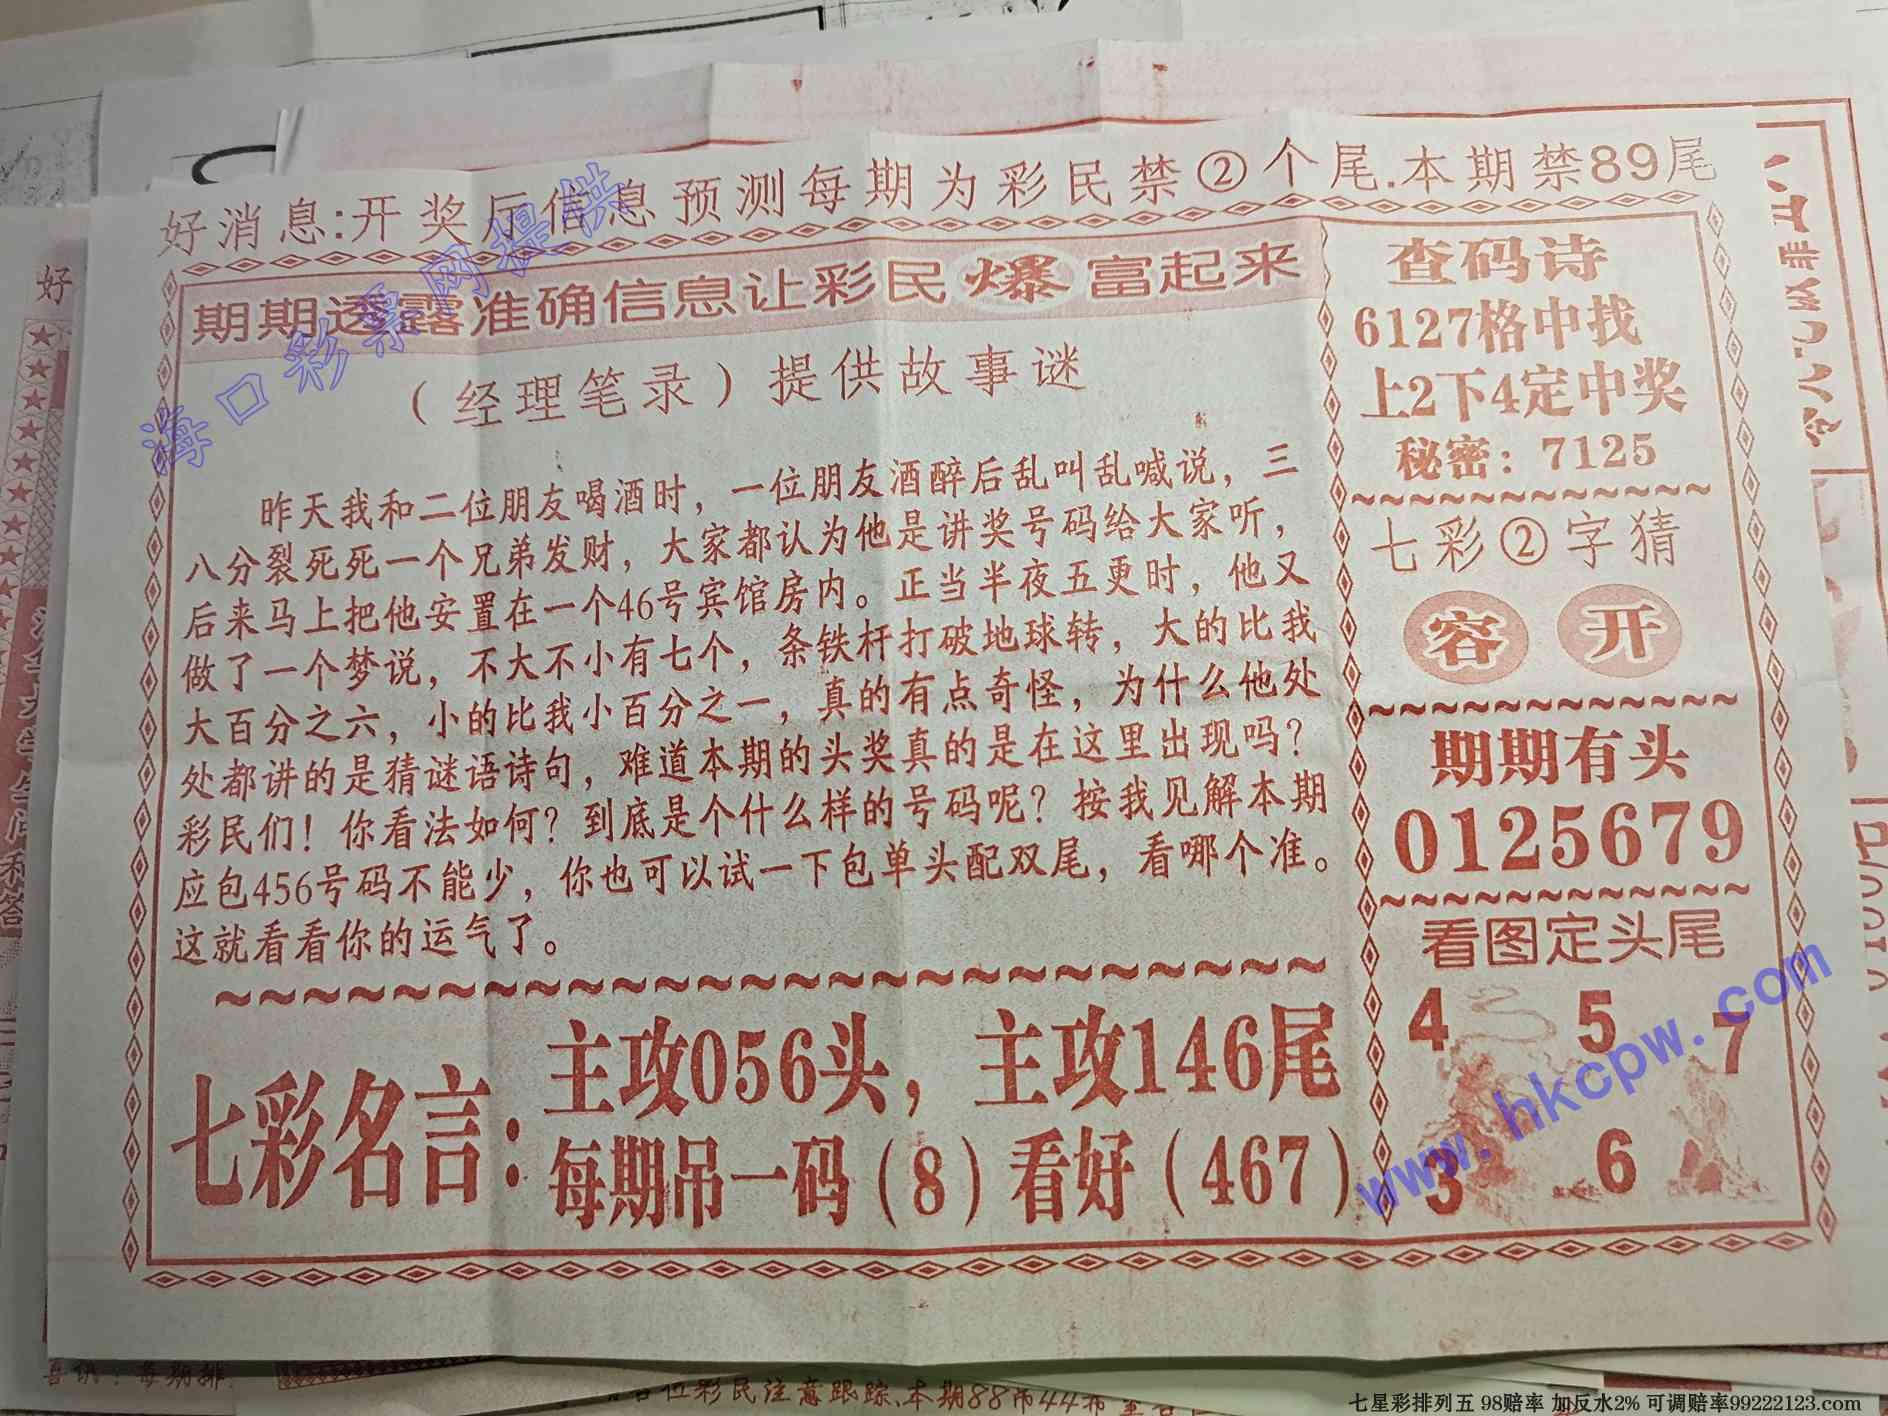 好消息:开奖厅信息预测每期为彩民禁②个尾.本期禁89尾
期期透露准确信息让彩民爆富起来
（经理笔录）提供故事谜
昨天我和二位朋友喝酒时，一位朋友酒醉后乱叫乱喊说，三
八分裂死死一个兄弟发财，大家都认为他是讲奖号码给大家听，
后来马上把他安置在一个46号宾馆房内。正当半夜五更时，他又
做了一个梦说，不大不小有七个，条铁杆打破地球转，大的比我
大百分之六，小的比我小百分之一，真的有点奇怪，为什么他处
处都讲的是猜谜语诗句，难道本期的头奖真的是在这里出现吗？
彩民们！你看法如何？到底是个什么样的号码呢？按我见解本期
应包456号码不能少，你也可以试一下包单头配双尾，看哪个准。
这就看看你的运气了。
七彩名言：
主攻056头，主攻146尾
每期吊一码（8）看好（467）
查码诗
6127格中找
上2下4定中奖
秘密：7125
七彩②字猜
容 开
期期有头
0125679
看图定头尾
4 5 7
3 6
海口彩票网提供
www.hkcpw.com
好
喜讯：每期排
各位彩民注意跟踪.本期88币44布
七星彩排列五 98赔率 加反水2% 可调赔率99222123.com